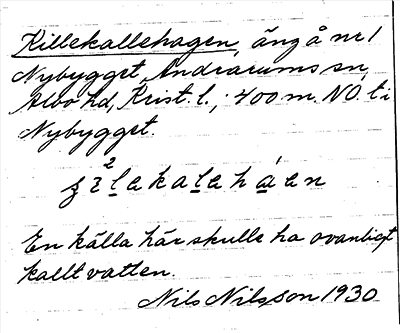 Killekallehagen, äng å nr 1
Nybygget, Andrarums sn,
Albo hd, Krist. l.; 400 m. NO. t i
Nybygget.
En källa här skulle ha ovanligt
kallt vatten.
Nils Nilsson 1930